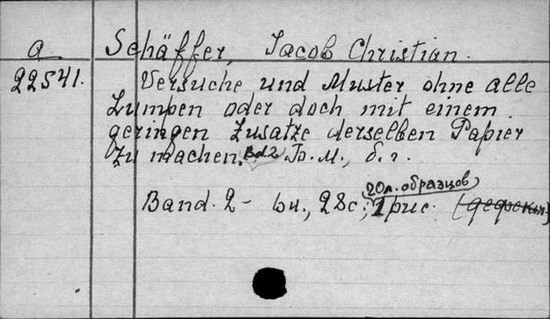 a Schäffer, Jacob Christian.
22541. Versuche und Muster ohne alle
Lumpen oder doch mit einem
geringen Zusatze derselben Papier
zu machen. Bd2 Б.м., б.г.
20л. образцов
Band. 2 - 28с., 1 рис.